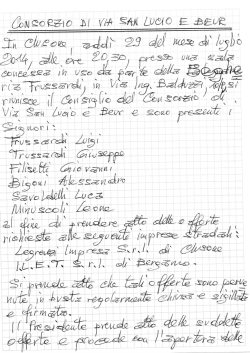 CONSORZIO DI VIA SAN LUCIO E BEUR
In Clusone, addì 29 del mese di luglio
2014, alle ore 20,30, presso una sala
concessa in uso da parte della
ria Trussardi, in Via Ing. Balduzzi, si
riunisce il Consiglio del Consorzio di
Via San Lucio e Beur e sono presenti i
Signori:
Trussardi Luigi
Trussardi Giuseppe
Filisetti Giovanni
Bigoni Alessandro
Savoldelli Luca
Minuscoli Leone
al fine di prendere atto delle offerte
richieste alle seguenti imprese stradali:
Legrenzi Impresa S.r.l. di Clusone
I.L.E.T. S.r.l. di Bergamo.
Si prende atto che tali offerte sono perve
nute in busta regolarmente chiusa e sigillata
e firmata.
Il Presidente prende atto delle suddette
offerte e procede con l'apertura delle